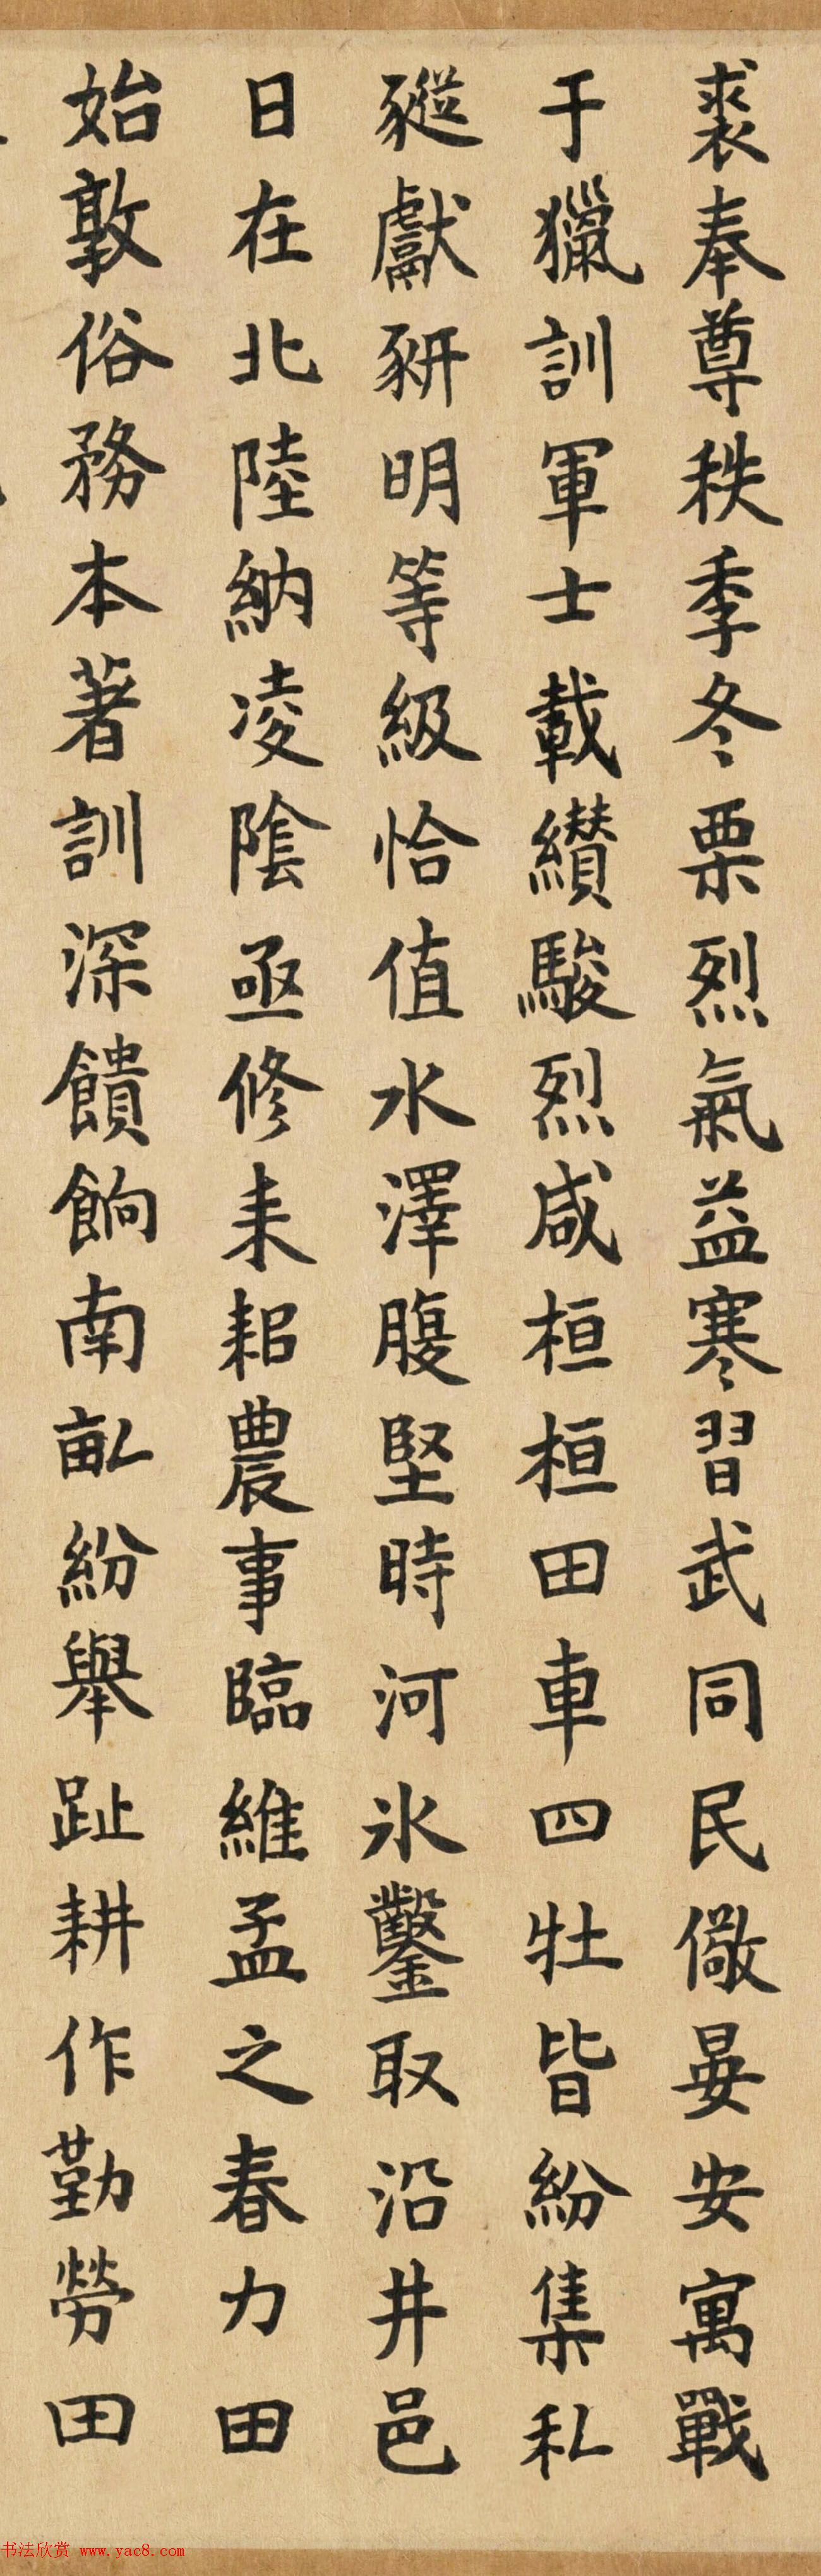 裘奉尊秩季冬栗烈氣益寒習武同民儆晏安寓戰
于獵訓軍士載纘駿烈咸桓桓田車四牡皆紛集私
豵獻豜明等級恰值水澤腹堅時河氷鑿取沿井邑
日在北陸納凌陰亟修耒耜農事臨維孟之春力田
始敦俗務本著訓深饋餉南畝紛舉趾耕作勤勞田
书法欣赏 www.yac8.com